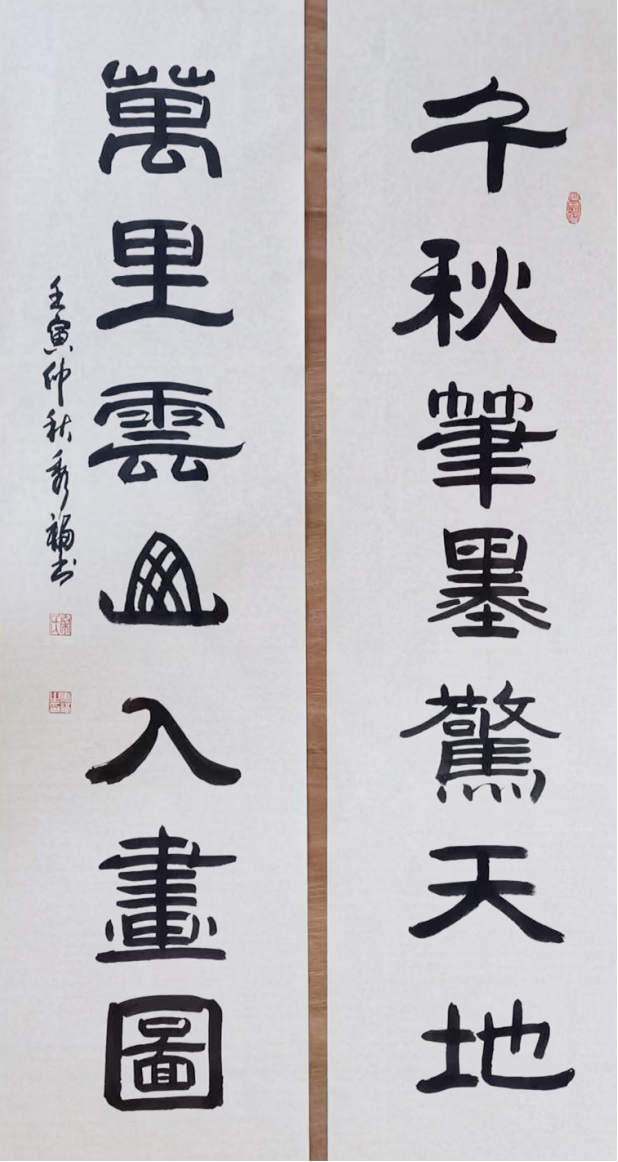 千秋筆墨驚天地
萬里雲山入畫圖
壬寅仲秋秀福书